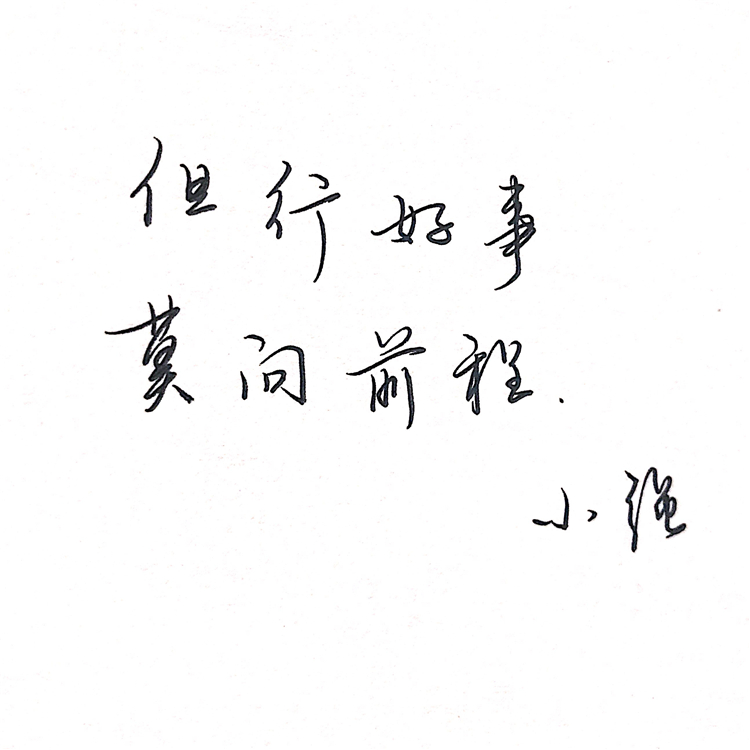 但行好事
莫问前程.
小强